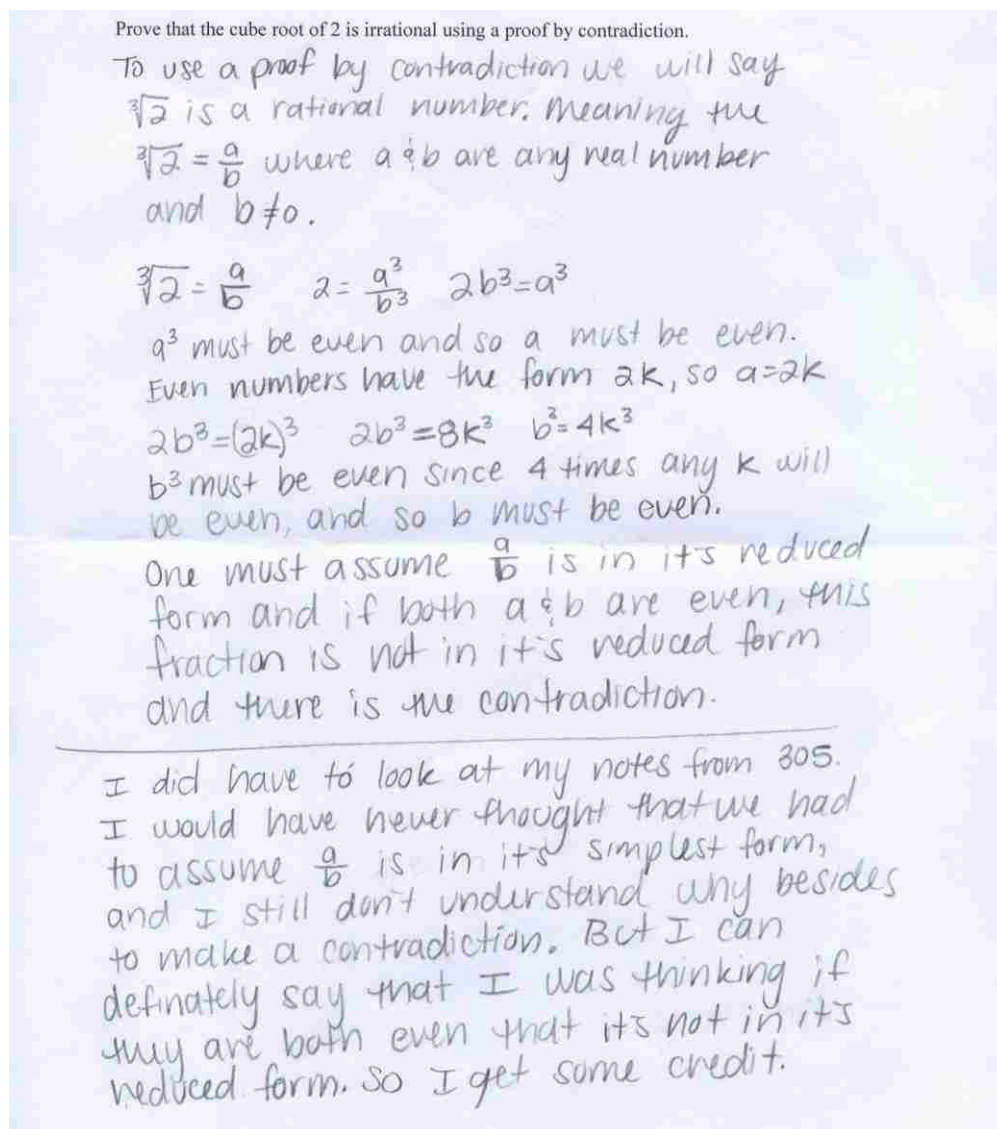 Prove that the cube root of 2 is irrational using a proof by contradiction.
To use a proof by contradiction we will say
∛2 is a rational number. Meaning the
∛2 = a/b where a & b are any real number
and b≠0.
∛2 = a/b 2 = a³/b³ 2b³=a³
a³ must be even and so a must be even.
Even numbers have the form 2k, so a=2k
2b³=(2k)³ 2b³=8k³ b³=4k³
b³ must be even since 4 times any k will
be even, and so b must be even.
One must assume a/b is in it's reduced
form and if both a & b are even, this
fraction is not in it's reduced form
and there is the contradiction.
I did have to look at my notes from 305.
I would have never thought that we had
to assume a/b is in it's simplest form,
and I still don't understand why besides
to make a contradiction. But I can
definately say that I was thinking if
they are both even that it's not in it's
reduced form. So I get some credit.